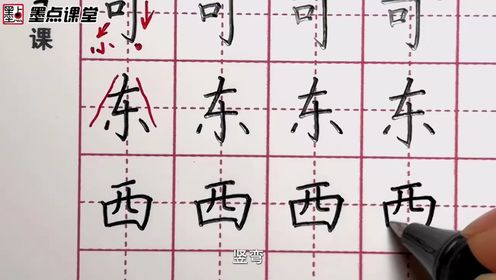 墨点 墨点课堂
课
可 可 可 可
小
东 东 东 东
西 西 西 西
竖弯